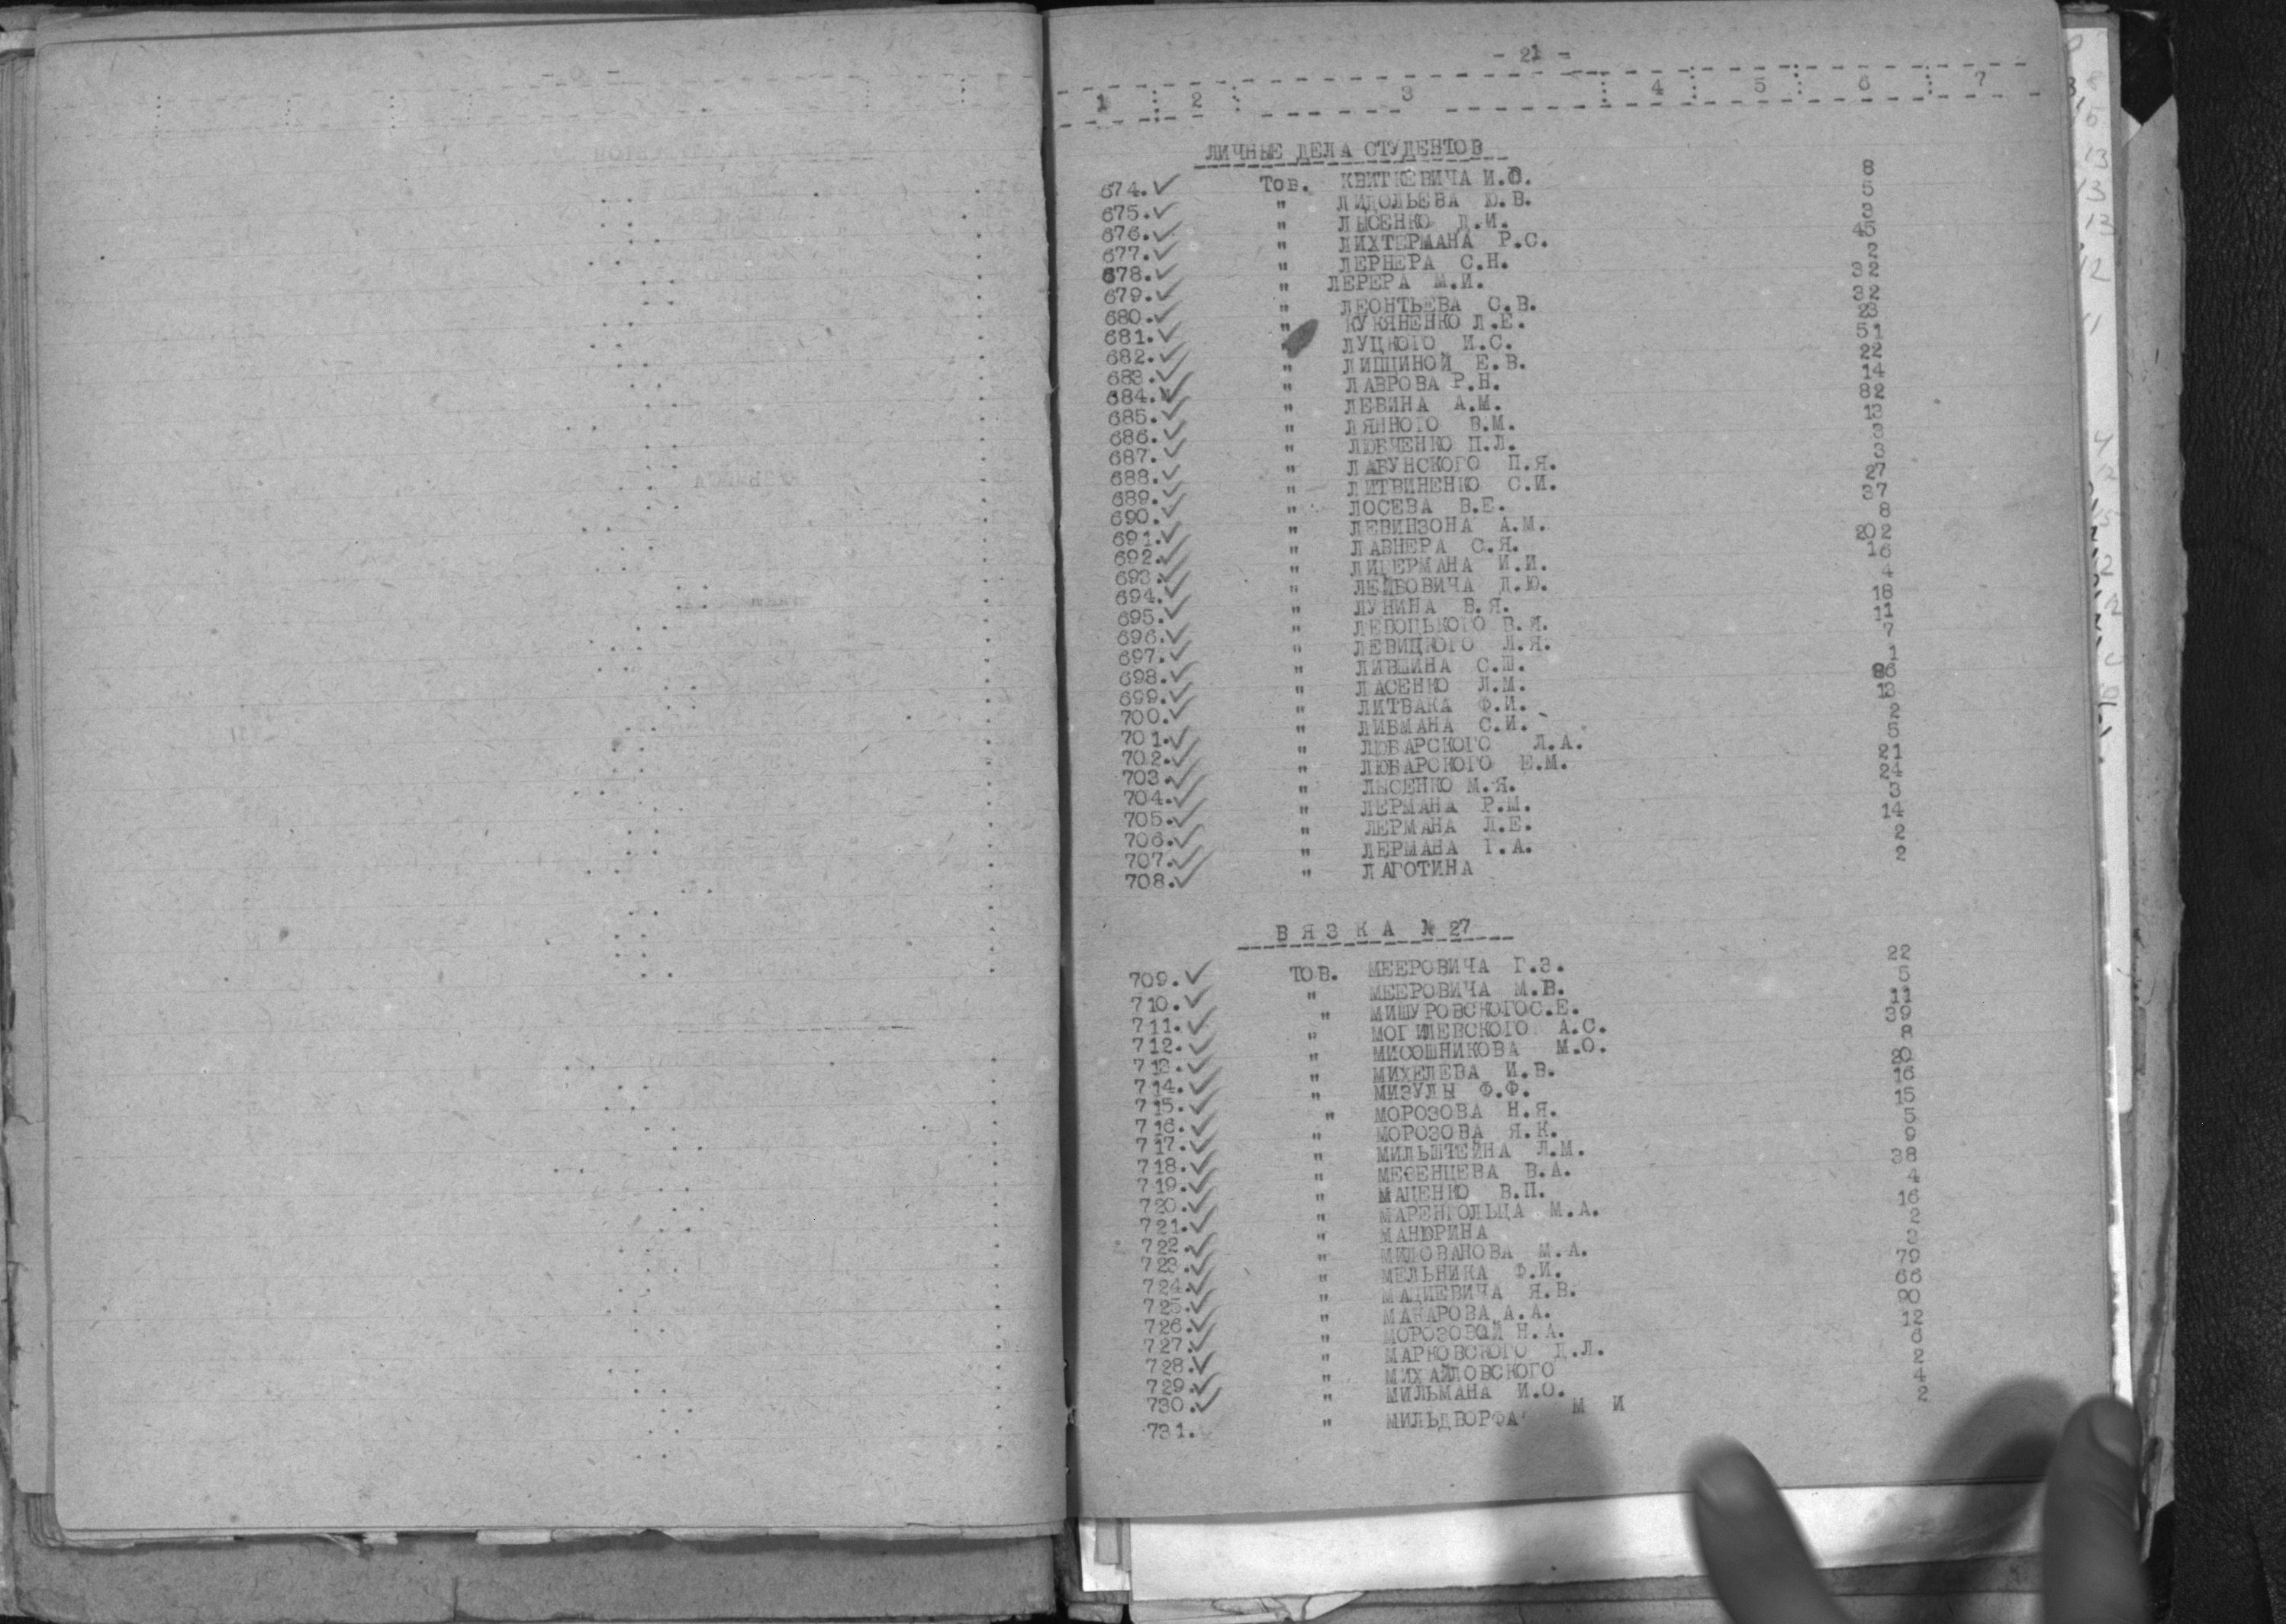 - 21 -
1 2 3 4 5 6 7
ЛИЧНЫЕ ДЕЛА СТУДЕНТОВ
674. Тов. КВИТКЕВИЧА И.О. 8
675. " ЛИДОЛЬЕВА Ю.В. 5
676. " ЛЫСЕНКО Д.И. 3
677. " ЛИХТЕРМАНА Р.С. 45
678. " ЛЕРНЕРА С.Н. 2
679. " ЛЕРЕРА М.И. 32
680. " ЛЕОНТЬЕВА С.В. 32
681. " КУКЯНЕНКО Л.Е. 23
682. " ЛУЦКОГО И.С. 51
683. " ЛИПЩИНОЙ Е.В. 22
684. " ЛАВРОВА Р.Н. 14
685. " ЛЕВИНА А.М. 82
686. " ЛЯННОГО В.М. 13
687. " ЛЮБЧЕНКО П.Л. 3
688. " ЛАБУНСКОГО П.Я. 3
689. " ЛИТВИНЕНКО С.И. 27
690. " ЛОСЕВА В.Е. 37
691. " ЛЕВИНЗОНА А.М. 8
692. " ЛАВНЕРА С.Я. 202
693. " ЛИДЕРМАНА И.И. 16
694. " ЛЕЙБОВИЧА Д.Ю. 4
695. " ЛУНИНА В.Я. 18
696. " ЛЕВОЦЬКОГО В.Я. 11
697. " ЛЕВИЦКОГО Л.Я. 7
698. " ЛИВШИНА С.Ш. 1
699. " ЛАСЕНКО Л.М. 86
700. " ЛИТВАКА Ф.И. 13
701. " ЛИВМАНА С.И. 2
702. " ЛЮБАРСКОГО Л.А. 5
703. " ЛЮБАРСКОГО Е.М. 21
704. " ЛЫСЕНКО М.Я. 24
705. " ЛЕРМАНА Р.М. 3
706. " ЛЕРМАНА Л.Е. 14
707. " ЛЕРМАНА Г.А. 2
708. " ЛАГОТИНА 2
ВЯЗКА № 27
709. ТОВ. МЕЕРОВИЧА Г.З. 22
710. " МЕЕРОВИЧА М.В. 5
711. " МИШУРОВСКОГОС.Е. 11
712. " МОГИЛЕВСКОГО А.С. 39
713. " МИСОШНИКОВА М.О. 8
714. " МИХЕЛЕВА И.В. 20
715. " МИЗУЛЫ Ф.Ф. 16
716. " МОРОЗОВА Н.Я. 15
717. " МОРОЗОВА Я.К. 5
718. " МИЛЬШТЕЙНА Л.М. 9
719. " МЕСЕНЦЕВА В.А. 38
720. " МАЦЕНКО В.П. 4
721. " МАРЕНГОЛЬЦА М.А. 16
722. " МАНЮРИНА 2
723. " МИЛОВАНОВА М.А. 3
724. " МЕЛЬНИКА Ф.И. 79
725. " МАЦИЕВИЧА Я.В. 66
726. " МАКАРОВА А.А. 90
727. " МОРОЗОВОЙ Н.А. 12
728. " МАРКОВСКОГО Д.Л. 6
729. " МИХАЙЛОВСКОГО 2
730. " МИЛЬМАНА И.О. 4
731. " МИЛЬДВОРФА М И 2